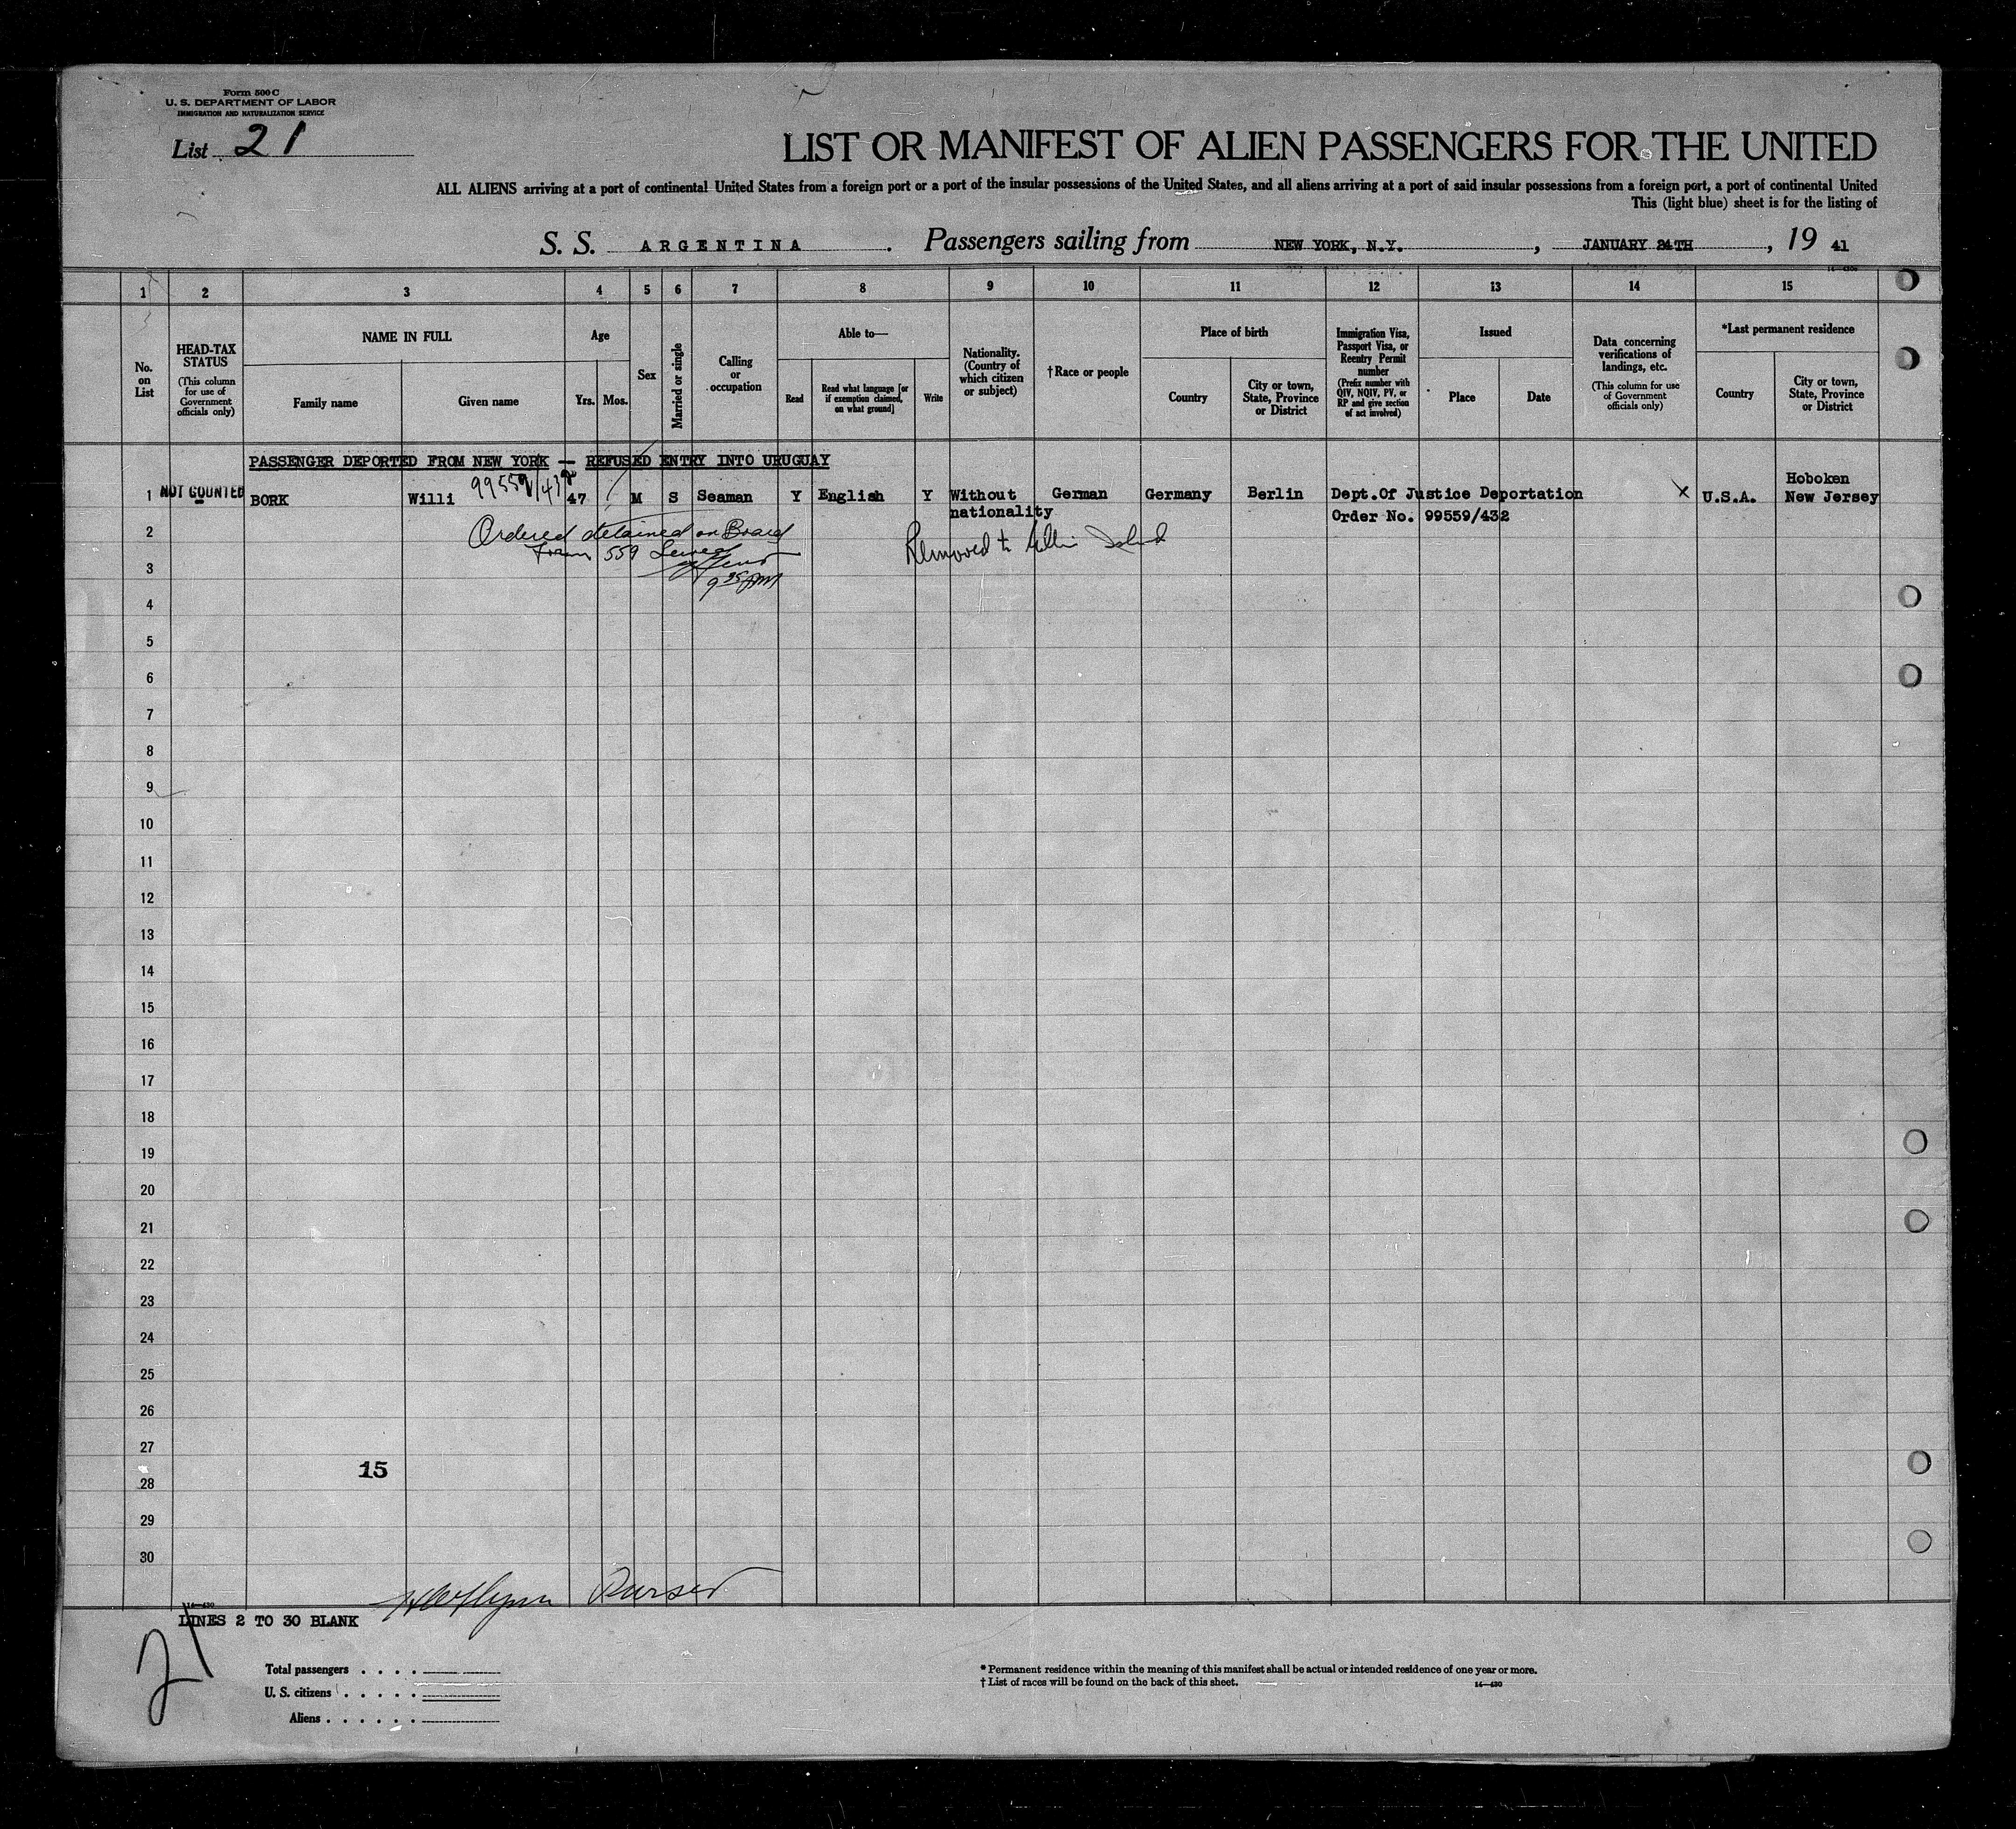 Form 500 C
U. S. DEPARTMENT OF LABOR
IMMIGRATION AND NATURALIZATION SERVICE
List 21
LIST OR MANIFEST OF ALIEN PASSENGERS FOR THE UNITED
ALL ALIENS arriving at a port of continental United States from a foreign port or a port of the insular possessions of the United States, and all aliens arriving at a port of said insular possessions from a foreign port, a port of continental United
This (light blue) sheet is for the listing of
S. S. ARGENTINA . Passengers sailing from NEW YORK, N.Y. , JANUARY 24TH , 19 41
1 2 3 4 5 6 7 8 9 10 11 12 13 14 15
No. on List
HEAD-TAX STATUS
(This column for use of Government officials only)
NAME IN FULL
Family name
Given name
Age
Yrs. Mos.
Sex
Married or single
Calling or occupation
Able to—
Read
Read what language [or if exemption claimed, on what ground]
Write
Nationality. (Country of which citizen or subject)
†Race or people
Place of birth
Country
City or town, State, Province or District
Immigration Visa, Passport Visa, or Reentry Permit number
(Prefix number with QIV, NQIV, PV, or RP and give section of act involved)
Issued
Place
Date
Data concerning verifications of landings, etc.
(This column for use of Government officials only)
*Last permanent residence
Country
City or town, State, Province or District
PASSENGER DEPORTED FROM NEW YORK — REFUSED ENTRY INTO URUGUAY
99559/432
Hoboken
1 NOT COUNTED BORK Willi 47 M S Seaman Y English Y Without German Germany Berlin Dept.Of Justice Deportation X U.S.A. New Jersey
nationality Order No. 99559/432
2 Ordered detained on Board Removed to Ellis Island
Form 559 Served
3
9 35 PM
4
5
6
7
8
9
10
11
12
13
14
15
16
17
18
19
20
21
22
23
24
25
26
27
15
28
29
30
Purser
16—430
LINES 2 TO 30 BLANK
21
Total passengers . . . .
U. S. citizens . . . . .
Aliens . . . . . .
* Permanent residence within the meaning of this manifest shall be actual or intended residence of one year or more.
† List of races will be found on the back of this sheet. 14—430